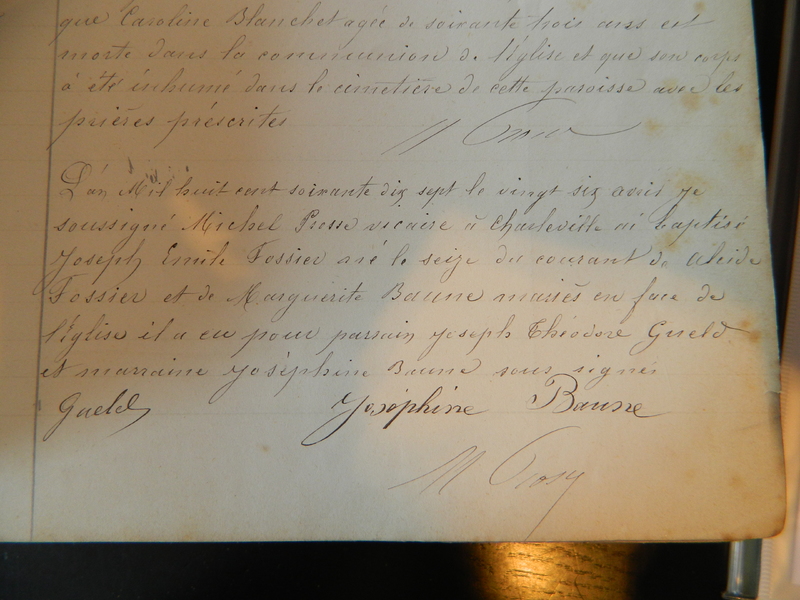 que Caroline Blanchet agée de soixante trois ans est
morte dans la communion de l'église et que son corps
a été inhumé dans le cimetière de cette paroisse avec les
prières préscrites
L'an Mil huit cent soixante dix sept le vingt six avril je
soussigné Michel Prosse vicaire à Charleville ai baptisé
Joseph Emile Fossier né le seize du courant de Alcide
Fossier et de Marguerite Baune mariés en face de
l'église il a eu pour parrain Joseph Théodore Gueld
et marraine Joséphine Baune sous signés
Gueld Joséphine Baune
M